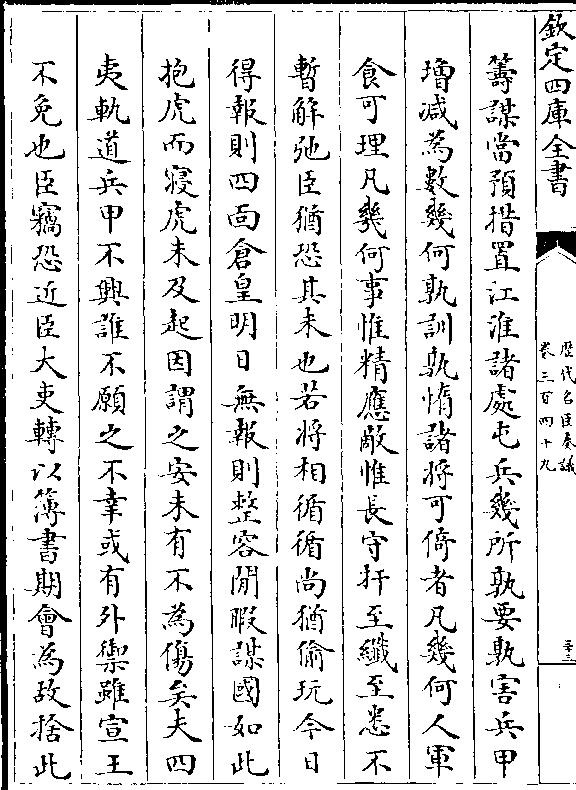 欽定四庫全書
歷代名臣奏議
卷三百四十九
三十三
籌謀當預措置江淮諸處屯兵幾所孰要孰害兵甲
增減為數幾何孰訓孰惰諸將可倚者凡幾何人軍
食可理凡幾何事惟精應敵惟長守扞至纖至悉不
暫解弛臣猶恐其未也若將相循循尚猶偷玩今日
得報則四面倉皇明日無報則整容閒暇謀國如此
抱虎而寢虎未及起因謂之安未有不為傷矣夫四
夷軌道兵甲不興誰不願之不幸或有外禦雖宣王
不免也臣竊恐近臣大吏轉以簿書期會為故捨此